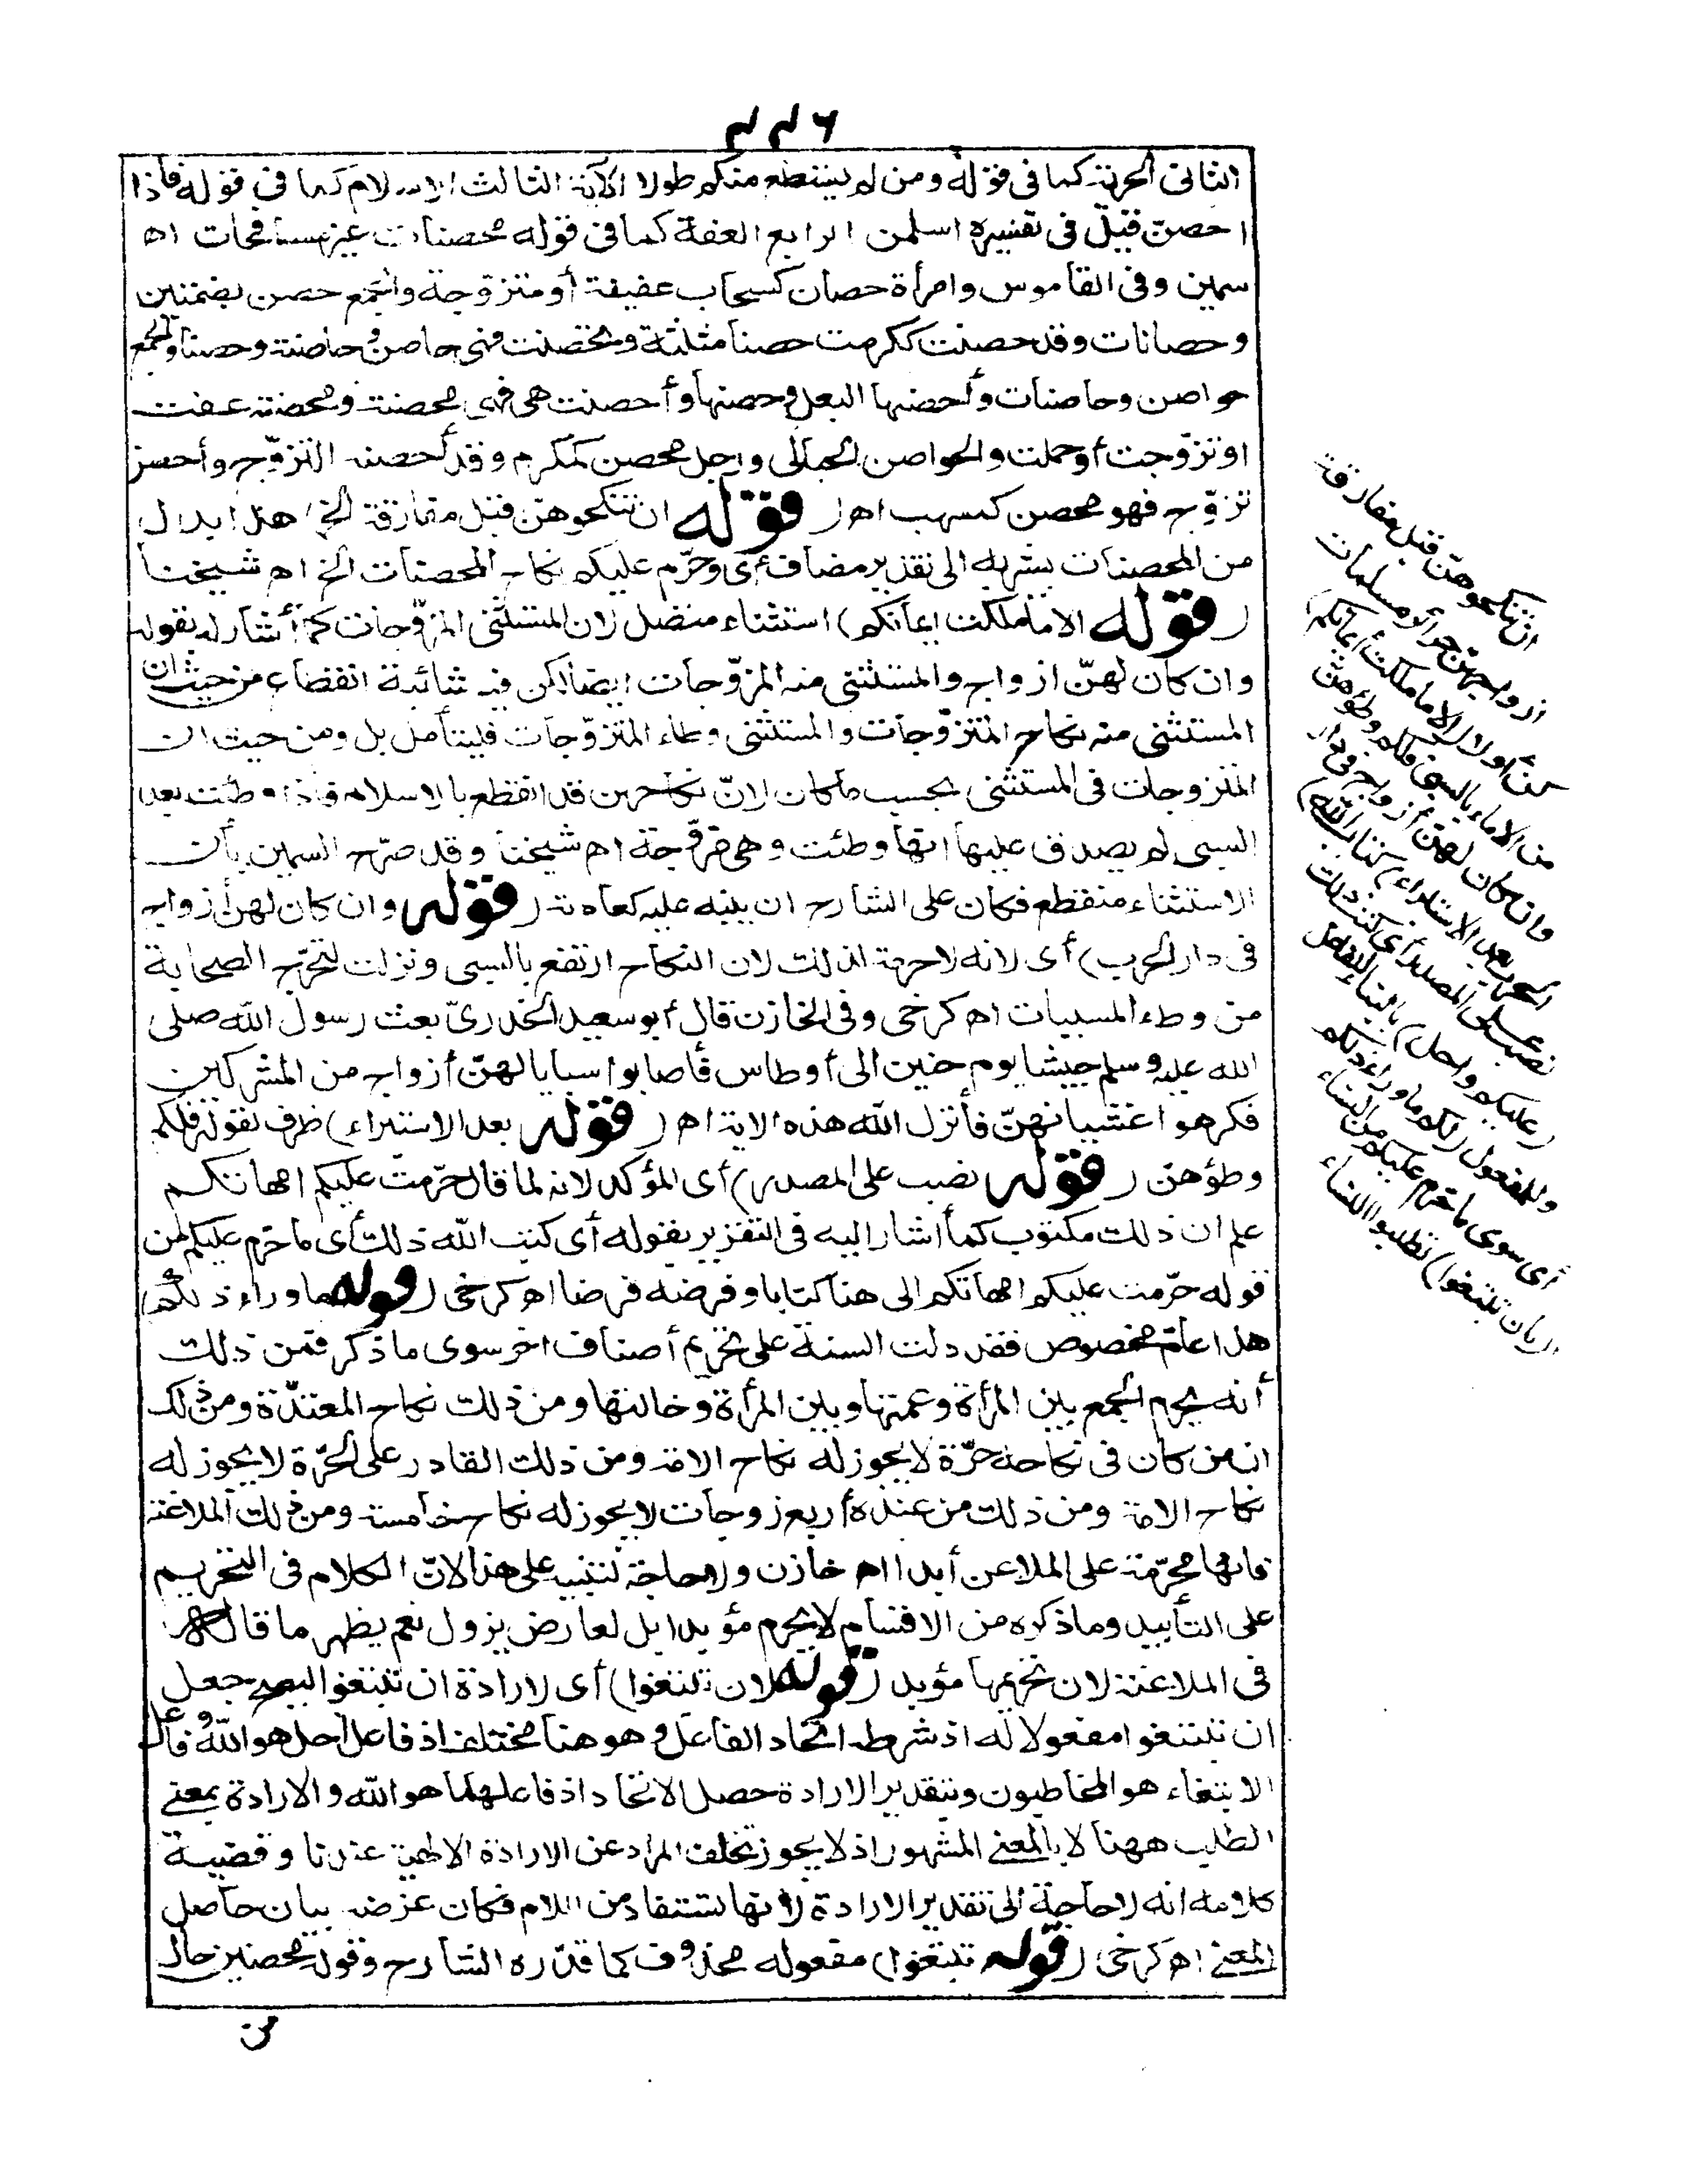 ٤٤٦
الثانى الحرية كما فى قوله ومن لم يستطع منكم طولا الآية الثالث الاسلام كما فى قوله فاذا
احصن قيل فى تفسيره اسلمن الرابع العفة كما فى قوله محصنات غير مسافحات اه
سمين وفى القاموس وامرأة حصان كسحاب عفيفة أو متزوجة والجمع حصن بضمتين
وحصانات وقد حصنت ككرمت حصنا مثلثة وتحصنت فهى حاصن وحاصنة وحصناء والجمع
حواصن وحاصنات وأحصنها البعل وحصنها وأحصنت هى فهى محصنة ومحصنة عفت
او تزوجت أو حملت والحواصن الحبالى ورجل محصن كمكرم وقد أحصنه التزوج وأحصن
تزوج فهو محصن كمسهب اه (قوله ان تنكحوهن قبل مفارقة الخ) هذا بدل
من المحصنات يشير به الى تقدير مضاف أى وحرم عليكم نكاح المحصنات الخ اه شيخنا
(قوله الا ما ملكت ايمانكم) استثناء متصل لان المستثنى المزوجات كما أشار له بقوله
وان كان لهن ازواج والمستثنى منه المزوجات ايضا لكن فيه شائبة انقطاع من حيث ان
المستثنى منه نكاح المتزوجات والمستثنى وطء المتزوجات فليتأمل بل ومن حيث ان
المتزوجات فى المستثنى بحسب ما كان لانّ نكاحهن قد انقطع بالاسلام فاذا وطئت بعد
السبى لم يصدق عليها انها وطئت وهى مزوجة اه شيخنا وقد صرح السمين بأن
الاستثناء منقطع فكان على الشارح ان ينبه عليه كعادته (قوله وان كان لهن أزواج
فى دار الحرب) أى لانه لاحرمة لذلك لان النكاح ارتفع بالسبى ونزلت لتحرج الصحابة
من وطء المسبيات اه كرخى وفى الخازن قال أبو سعيد الخدرىّ بعث رسول الله صلى
الله عليه وسلم جيشا يوم حنين الى أوطاس فأصابوا سبايا لهنّ أزواج من المشركين
فكرهوا غشيانهنّ فأنزل الله هذه الاية اه (قوله بعد الاستبراء) ظرف لقوله فلكم
وطؤهن (قوله نصب على المصدر) أى المؤكد لانه لما قال حرّمت عليكم امهاتكم
علم ان ذلك مكتوب كما أشار اليه فى التقرير بقوله أى كتب الله ذلك أى ما حرم عليكم من
قوله حرّمت عليكم امهاتكم الى هنا كتابا وفرضه فرضا اه كرخى (قوله ما وراء ذلكم)
هذا عام مخصوص فقد دلت السنة على تحريم أصناف اخر سوى ما ذكر فمن ذلك
أنه يحرم الجمع بين المرأة وعمتها وبين المرأة وخالتها ومن ذلك نكاح المعتدّة ومن ذلك
ان من كان فى نكاحه حرّة لا يجوز له نكاح الامة ومن ذلك القادر على الحرّة لا يجوز له
نكاح الامة ومن ذلك من عنده أربع زوجات لا يجوز له نكاح خامسة ومن ذلك الملاعنة
فانها محرّمة على الملاعن أبدا اه خازن ولا حاجة لتنبيه على هذا لانّ الكلام فى التحريم
على التأبيد وما ذكره من الاقسام لا يحرم مؤبدا بل لعارض يزول نعم يظهر ما قاله
فى الملاعنة لان تحريمها مؤبد (قوله لان تبتغوا) أى لارادة ان تبتغوا جعل
ان تبتغوا مفعولا له اذ شرطه اتحاد الفاعل وهو هنا مختلف اذ فاعل أحل هو الله وفاعل
الابتغاء هو المخاطبون وبتقدير الارادة حصل الاتحاد اذ فاعلهما هو الله والارادة بمعنى
الطلب ههنا لا بالمعنى المشهور اذ لا يجوز تخلف المراد عن الارادة الالهية عندنا وقضية
كلامه انه لا حاجة الى تقدير الارادة لانها تستفاد من اللام فكان غرضه بيان حاصل
المعنى اه كرخى (قوله تبتغوا) مفعوله محذوف كما قدّره الشارح وقوله محصنين حال
من
ان تنكحوهنّ قبل مفارقة
ازواجهنّ حرائر مسلمات
كنّ أولا (الا ما ملكت أيمانكم)
من الاماء بالسبى فلكم وطؤهنّ
وان كان لهنّ أزواج فى دار
الحرب بعد الاستبراء (كتاب الله)
نصب على المصدر أى كتب ذلك
(عليكم وأحل) بالبناء للفاعل
وللمفعول (لكم ما وراء ذلكم)
أى سوى ما حرم عليكم من النساء
(ان تبتغوا) تطلبوا النساء